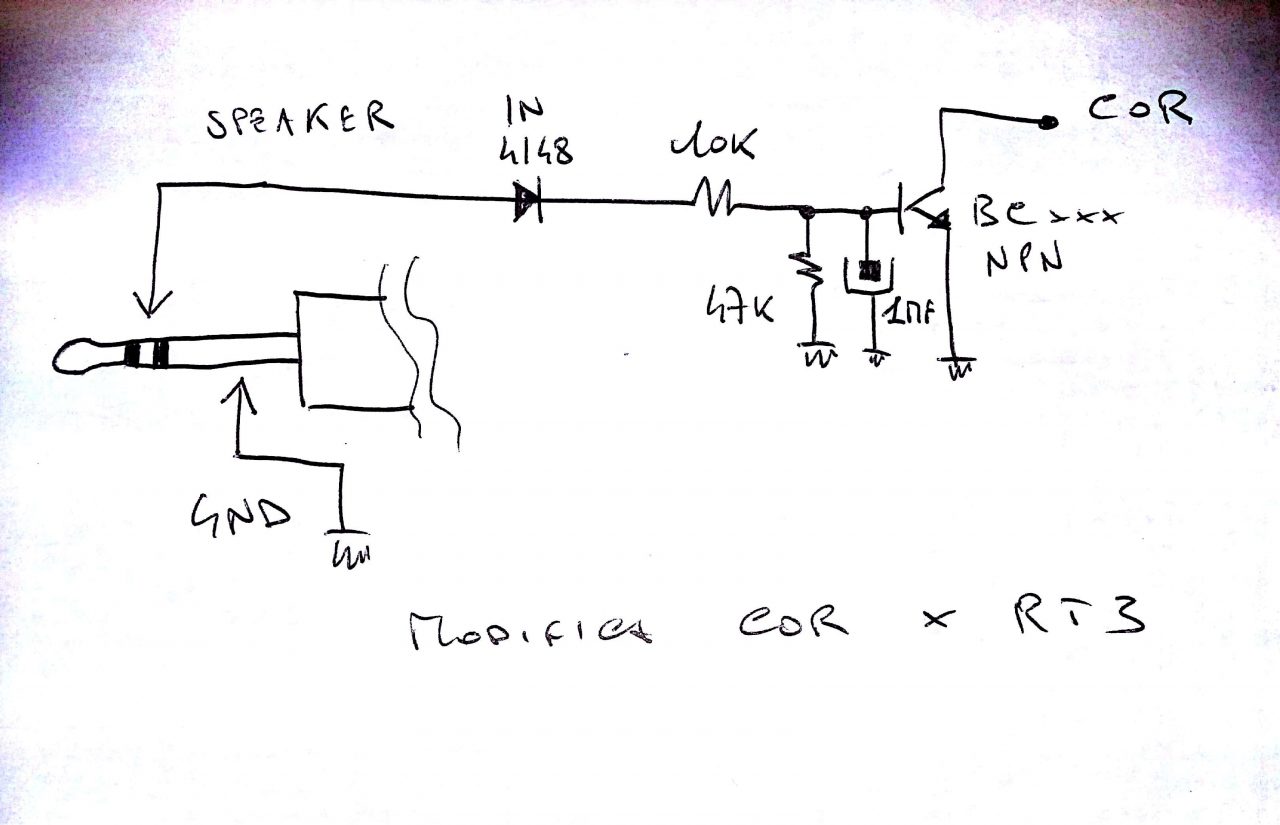 SPEAKER
IN
4148
10K
COR
BCxxx
NPN
47K
1nF
GND
MODIFICA COR x RT3